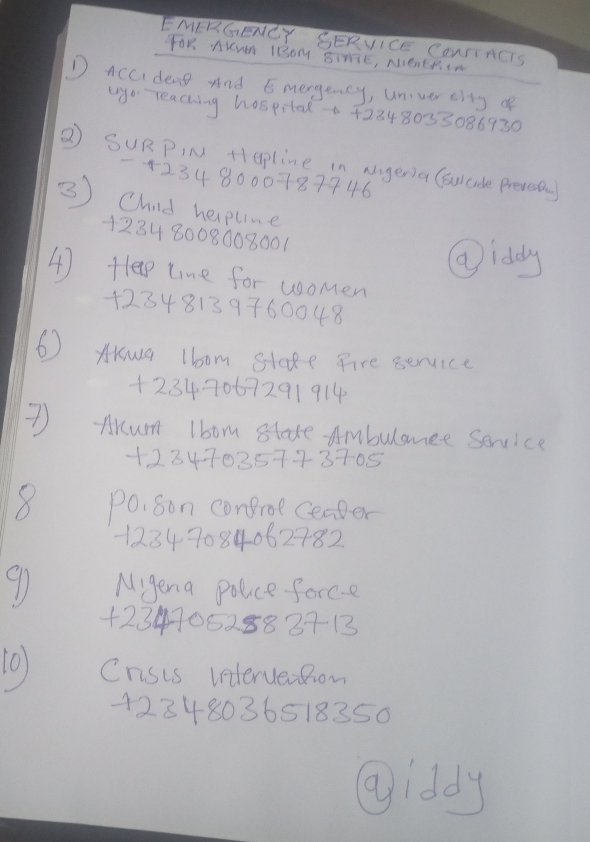 EMERGENCY SERVICE CONTACTS
FOR AKWA IBOM STATE, NIGERIA
1) Accident And Emergency, University of
Uyo Teaching hospital → +2348033086930
2) SURPIN Helpline in Nigeria (Suicide Prevention)
- +234 8000787746
3) Child helpline
+2348008008001
@iddy
4) Help line for women
+2348139760048
6) Akwa Ibom State Fire service
+2347067291914
7) Akwa Ibom State Ambulance Service
+2347035773705
8 Poison control Center
+2347084062782
9) Nigeria police force
+2347052583713
10) Crisis intervention
+2348036518350
@iddy